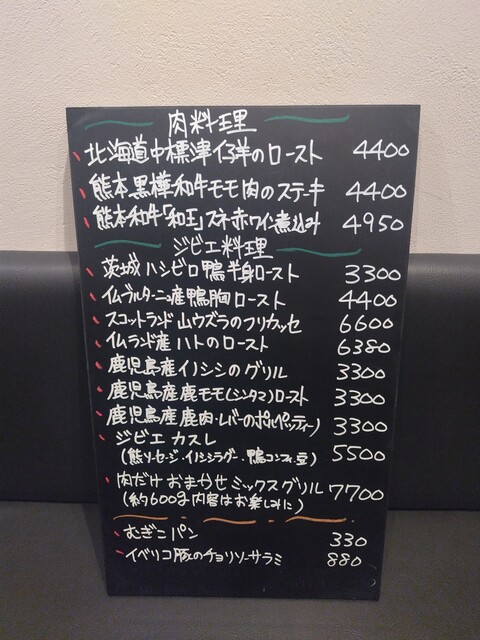 肉料理
北海道中標津仔羊のロースト 4400
熊本黒樺和牛モモ肉のステーキ 4400
熊本和牛「和王」スネ赤ワイン煮込み 4950
ジビエ料理
茨城ハシビロ鴨半身ロースト 3300
イムブルターニュ産鴨胸ロースト 4400
スコットランド山ウズラのフリカッセ 6600
イムランド産ハトのロースト 6380
鹿児島産イノシシのグリル 3300
鹿児島産鹿モモ(シンタマ)ロースト 3300
鹿児島産鹿肉・レバーのポルペッティー) 3300
ジビエカスレ
(熊ソーセージ・イノシシラグー・鴨コンフィ、豆) 5500
肉だけおまかせミックスグリル 7700
(約600g内容はお楽しみに)
むぎこパン 330
イベリコ豚のチョリソーサラミ 880